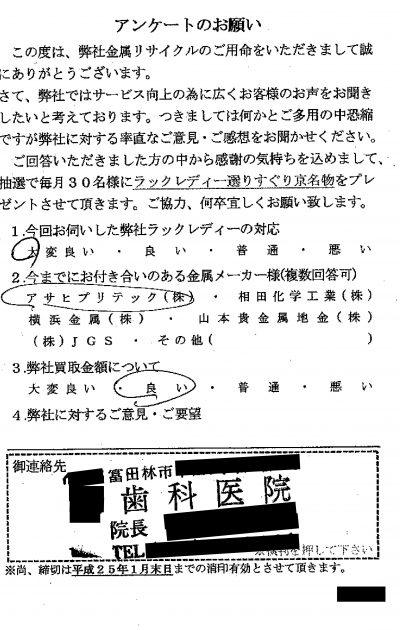 アンケートのお願い
この度は、弊社金属リサイクルのご用命をいただきまして誠
にありがとうございます。
さて、弊社ではサービス向上の為に広くお客様のお声をお聞き
したいと考えております。つきましては何かとご多用の中恐縮
ですが弊社に対する率直なご意見・ご感想をお聞かせください。
ご回答いただきました方の中から感謝の気持ちを込めまして、
抽選で毎月30名様にラックレディー選りすぐり京名物をプレ
ゼントさせて頂きます。ご協力、何卒宜しくお願い致します。
1.今回お伺いした弊社ラックレディーの対応
大変良い・良い・普通・悪い
2.今までにお付き合いのある金属メーカー様(複数回答可)
アサヒプリテック(株)・相田化学工業(株)
横浜金属(株)・山本貴金属地金(株)
(株)JGS・その他( )
3.弊社買取金額について
大変良い・良い・普通・悪い
4.弊社に対するご意見・ご要望
御連絡先
富田林市
歯科医院
院長
TEL
を押して下さい
※尚、締切は平成25年1月末日までの消印有効とさせて頂きます。